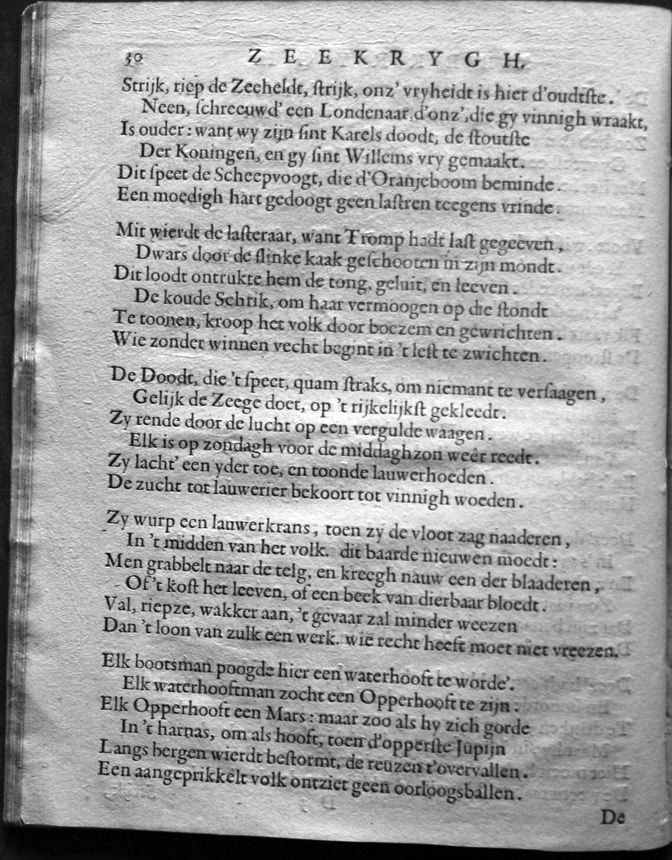 30 ZEEKRYGH.
Strijk, riep de Zeeheldt, ſtrijk, onz' vryheidt is hier d'oudtſte.
Neen, ſchreeuwd' een Londenaar, d'onz', die gy vinnigh wraakt,
Is ouder: want wy zijn ſint Karels doodt, de ſtoutſte
Der Koningen, en gy ſint Willems vry gemaakt.
Dit ſpeet de Scheepvoogt, die d'Oranjeboom beminde.
Een moedigh hart gedoogt geen laſtren teegens vrinde.
Mit wierdt de laſteraar, want Tromp hadt laſt gegeeven,
Dwars door de ſlinke kaak geſchooten in zijn mondt.
Dit loodt ontrukte hem de tong, geluit, en leeven.
De koude Schrik, om haar vermoogen op die ſtondt
Te toonen, kroop het volk door boezem en gewrichten.
Wie zonder winnen vecht begint in 't leſt te zwichten.
De Doodt, die 't ſpeet, quam ſtraks, om niemant te verſaagen,
Gelijk de Zeege doet, op 't rijkelijkſt gekleedt.
Zy rende door de lucht op een vergulde waagen.
Elk is op zondagh voor de middaghzon weer reedt.
Zy lacht' een yder toe, en toonde lauwerhoeden.
De zucht tot lauwerier bekoort tot vinnigh woeden.
Zy wurp een lauwerkrans, toen zy de vloot zag naaderen,
In 't midden van het volk. dit baarde nieuwen moedt:
Men grabbelt naar de telg, en kreegh nauw een der blaaderen,
Of 't koſt het leeven, of een beek van dierbaar bloedt.
Val, riepze, wakker aan, 't gevaar zal minder weezen
Dan 't loon van zulk een werk. wie recht heeft moet niet vreezen.
Elk bootsman poogde hier een waterhooft te worde'.
Elk waterhooftman zocht een Opperhooft te zijn:
Elk Opperhooft een Mars: maar zoo als hy zich gorde
In 't harnas, om als hooft, toen d'opperſte Jupijn
Langs bergen wierdt beſtormt, de reuzen t'overvallen.
Een aangeprikkelt volk ontziet geen oorloogsballen.
De